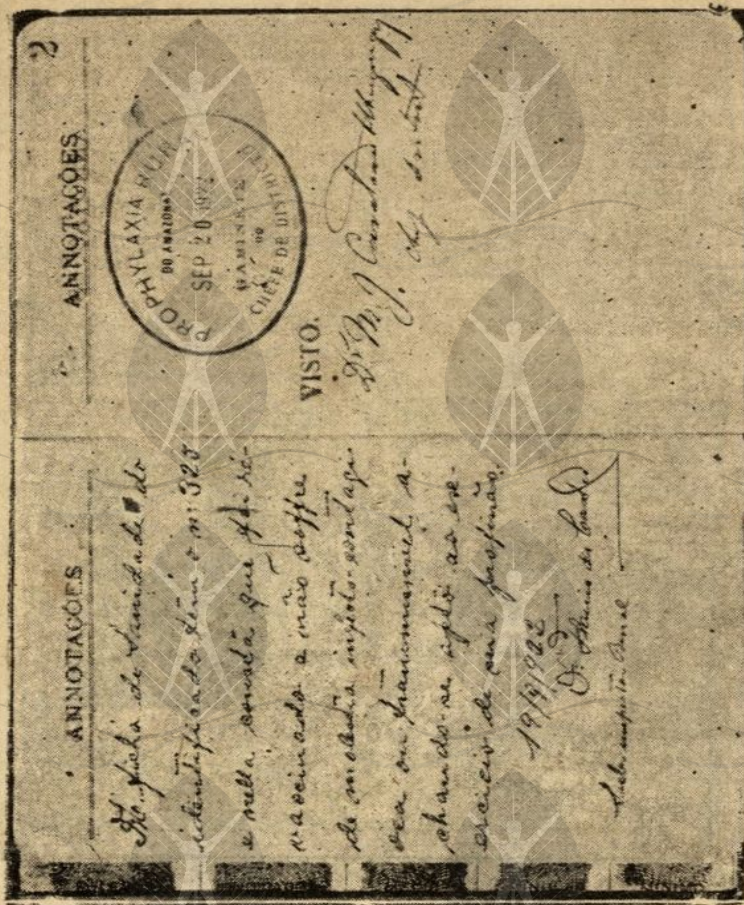 ANNOTAÇÕES
A ficha de Sanidade do
identificado tem o nº 325
e nella consta que foi re-
vaccinado e não soffre
de molestia infecto-contagi
osa ou transmissivel, a-
chando-se apto ao exe-
ercicio de sua profissão.
19/9/922
Dr.
Sub-inspector Rural
ANNOTAÇÕES
2
PROPHYLAXIA RUR
DO AMAZONAS
SEP 20 1922
GABINETE
DO
CHEFE DE DISTRICTO
VISTO.
Dr. M. J.